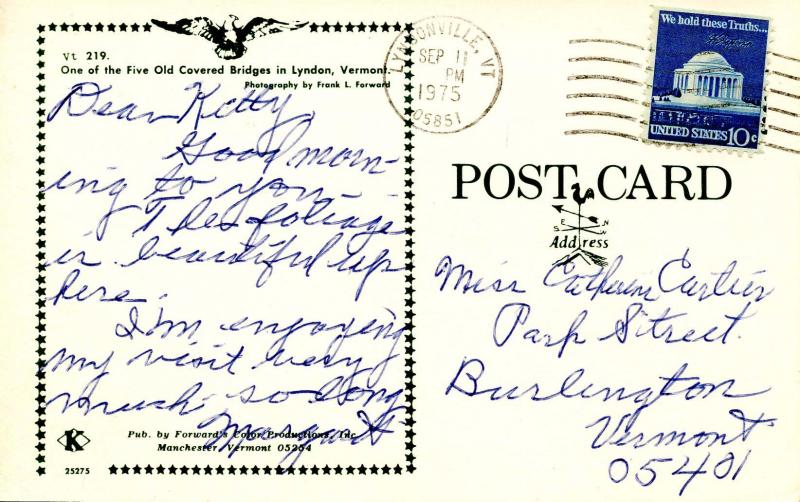 Vt 219.
One of the Five Old Covered Bridges in Lyndon, Vermont.
Photography by Frank L. Forward
Dear Kitty,
Good morn-
ing to you—
The foliage
is beautiful up
here.
I'm enjoying
my visit very
much. so long
Margaret
K
Pub. by Forward's Color Productions, Inc.
Manchester, Vermont 05254
25275
LYNDONVILLE, VT
SEP 11
PM
1975
05851
We hold these Truths...
UNITED STATES 10c
POST CARD
N
E
S
W
Address
Miss Cartier
Park Street.
Burlington
Vermont
05401